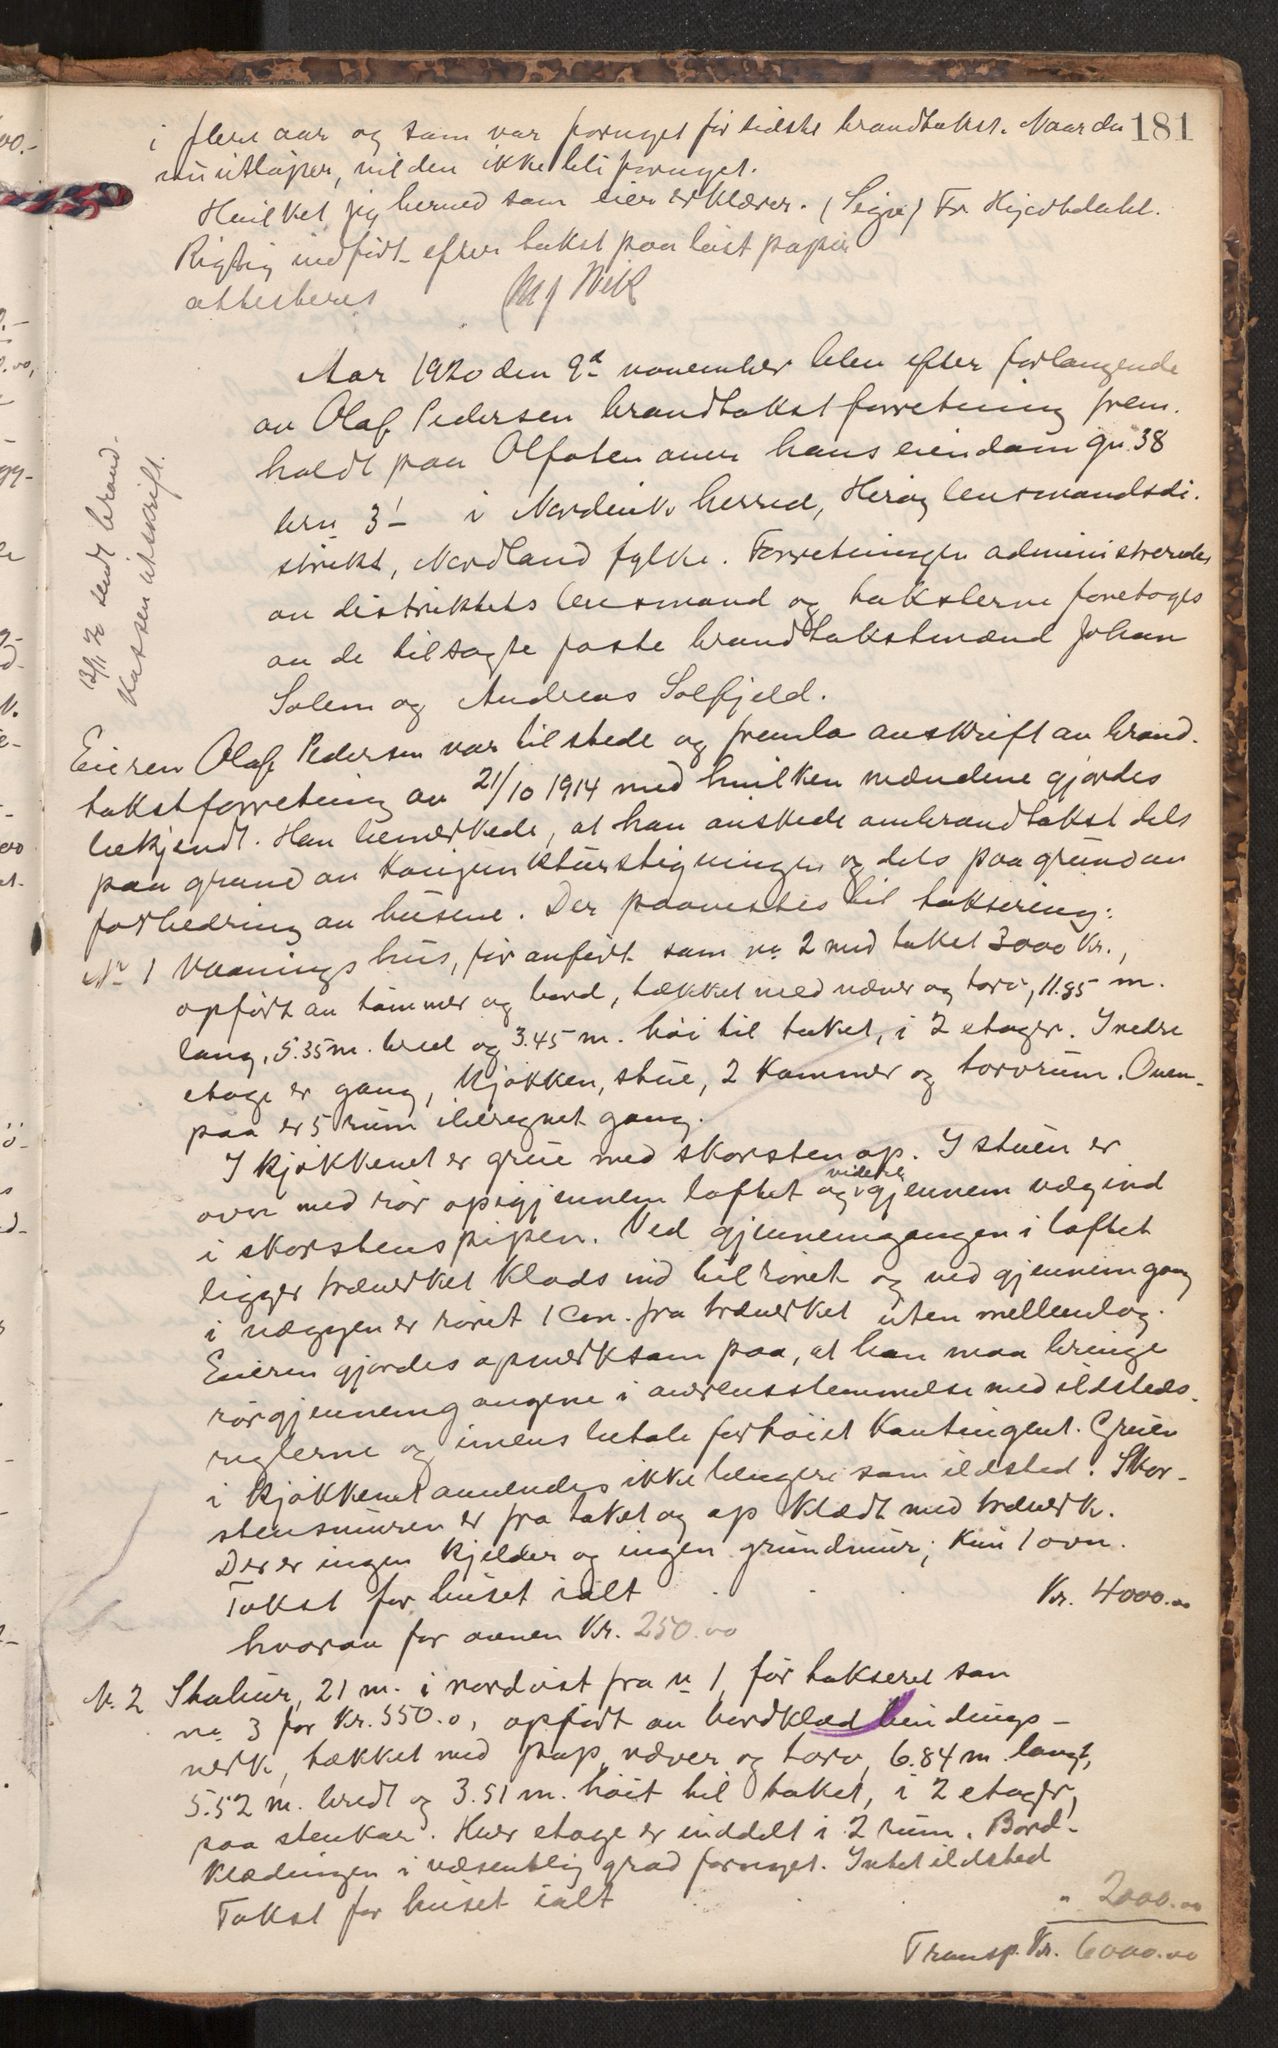 181
i flere aar og som var fornyet før sidste brandtakst. Naar den
nu utløper, vil den ikke bli fornyet.
Hvilket jeg herved som eier erklærer. (Sign) Fr Hjertdahl.
Rigtig indført efter takst paa løst papir
attesteres
Aar 1920 den 9d november blev efter forlangende
av Olaf Pedersen brandtakstforretning frem-
holdt paa Olfoten over hans eiendom gn. 38
brn 3 i Nordvik herred, Herøy lensmandsdi-
strikt, Nordland fylke. Forretningen administreredes
av distriktets lensmand og taksterne foretoges
av de tilsagte faste brandtakstmænd Johan
Solem og Andreas Solfjeld.
13/11 20 sendt brand-
kassen utskrift.
Eieren Olaf Pedersen var tilstede og fremla avskrift av brand-
takstforretning av 21/10 1914 med hvilken mændene gjordes
bekjendt. Han bemerkede, at han ønskede ombrandtakst dels
paa grund av konjunkturstigningen og dels paa grund av
forbedring av husene. Der paavistes til taksering:
No 1 Vaaningshus, før anført som no 2 med takst 3000 Kr.,
opført av tømmer og bord, tækket med næver og torv, 11.85 m.
lang, 5.35 m. bred og 3.45 m. høi til taket, i 2 etager. I nedre
etage er gang, kjøkken, stue, 2 kammer og torvrum. Oven-
paa er 5 rum iberegnet gang.
I kjøkkenet er grue med skorsten op. I stuen er
ovn med rør op igjennem loftet og videre gjennem væg ind
i skorstenspipen. Ved gjennemgangen i loftet
ligger træverket klods ind til røret og ved gjennemgang
i væggen er røret 1 cm. fra træverket uten mellemlag.
Eieren gjordes opmerksom paa, at han maa bringe
rørgjennemgangene i overensstemmelse med ildsteds-
reglerne og imens betale forhøiet kontingent. Gruen
i kjøkkenet anvendes ikke længere som ildsted. Skor-
stensmuren er fra taket og op klædt med træverk.
Der er ingen kjelder og ingen grundmur; kun 1 ovn.
Takst for huset ialt Kr. 4000.00
hvorav for ovnen Kr. 250.00
N. 2 Stabur, 21 m. i nordvest fra n 1, før takseret som
no 3 for Kr. 550.0, opført av bordklæd bindings-
verk, tækket med pap, næver og torv, 6.84 m. langt,
5.52 m. bredt og 3.51 m. høit til taket, i 2 etager,
paa stenkar. Hver etage er inddelt i 2 rum. Bord-
klædingen i væsentlig grad fornyet. Intet ildsted
Takst for huset ialt " 2000.00
Transp. Kr. 6000.00